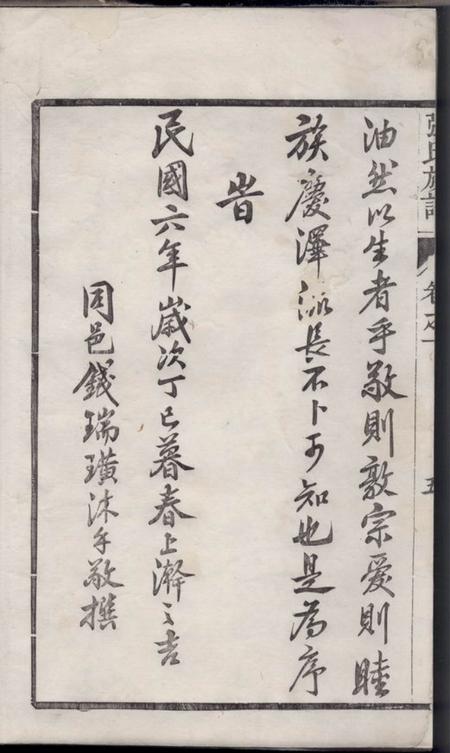 張氏族譜
卷之一
五
油然以生者乎敬則敦宗愛則睦
族慶澤派長不卜可知也是為序
旹
民國六年歲次丁巳暮春上澣之吉
同邑錢瑞璜沐手敬撰